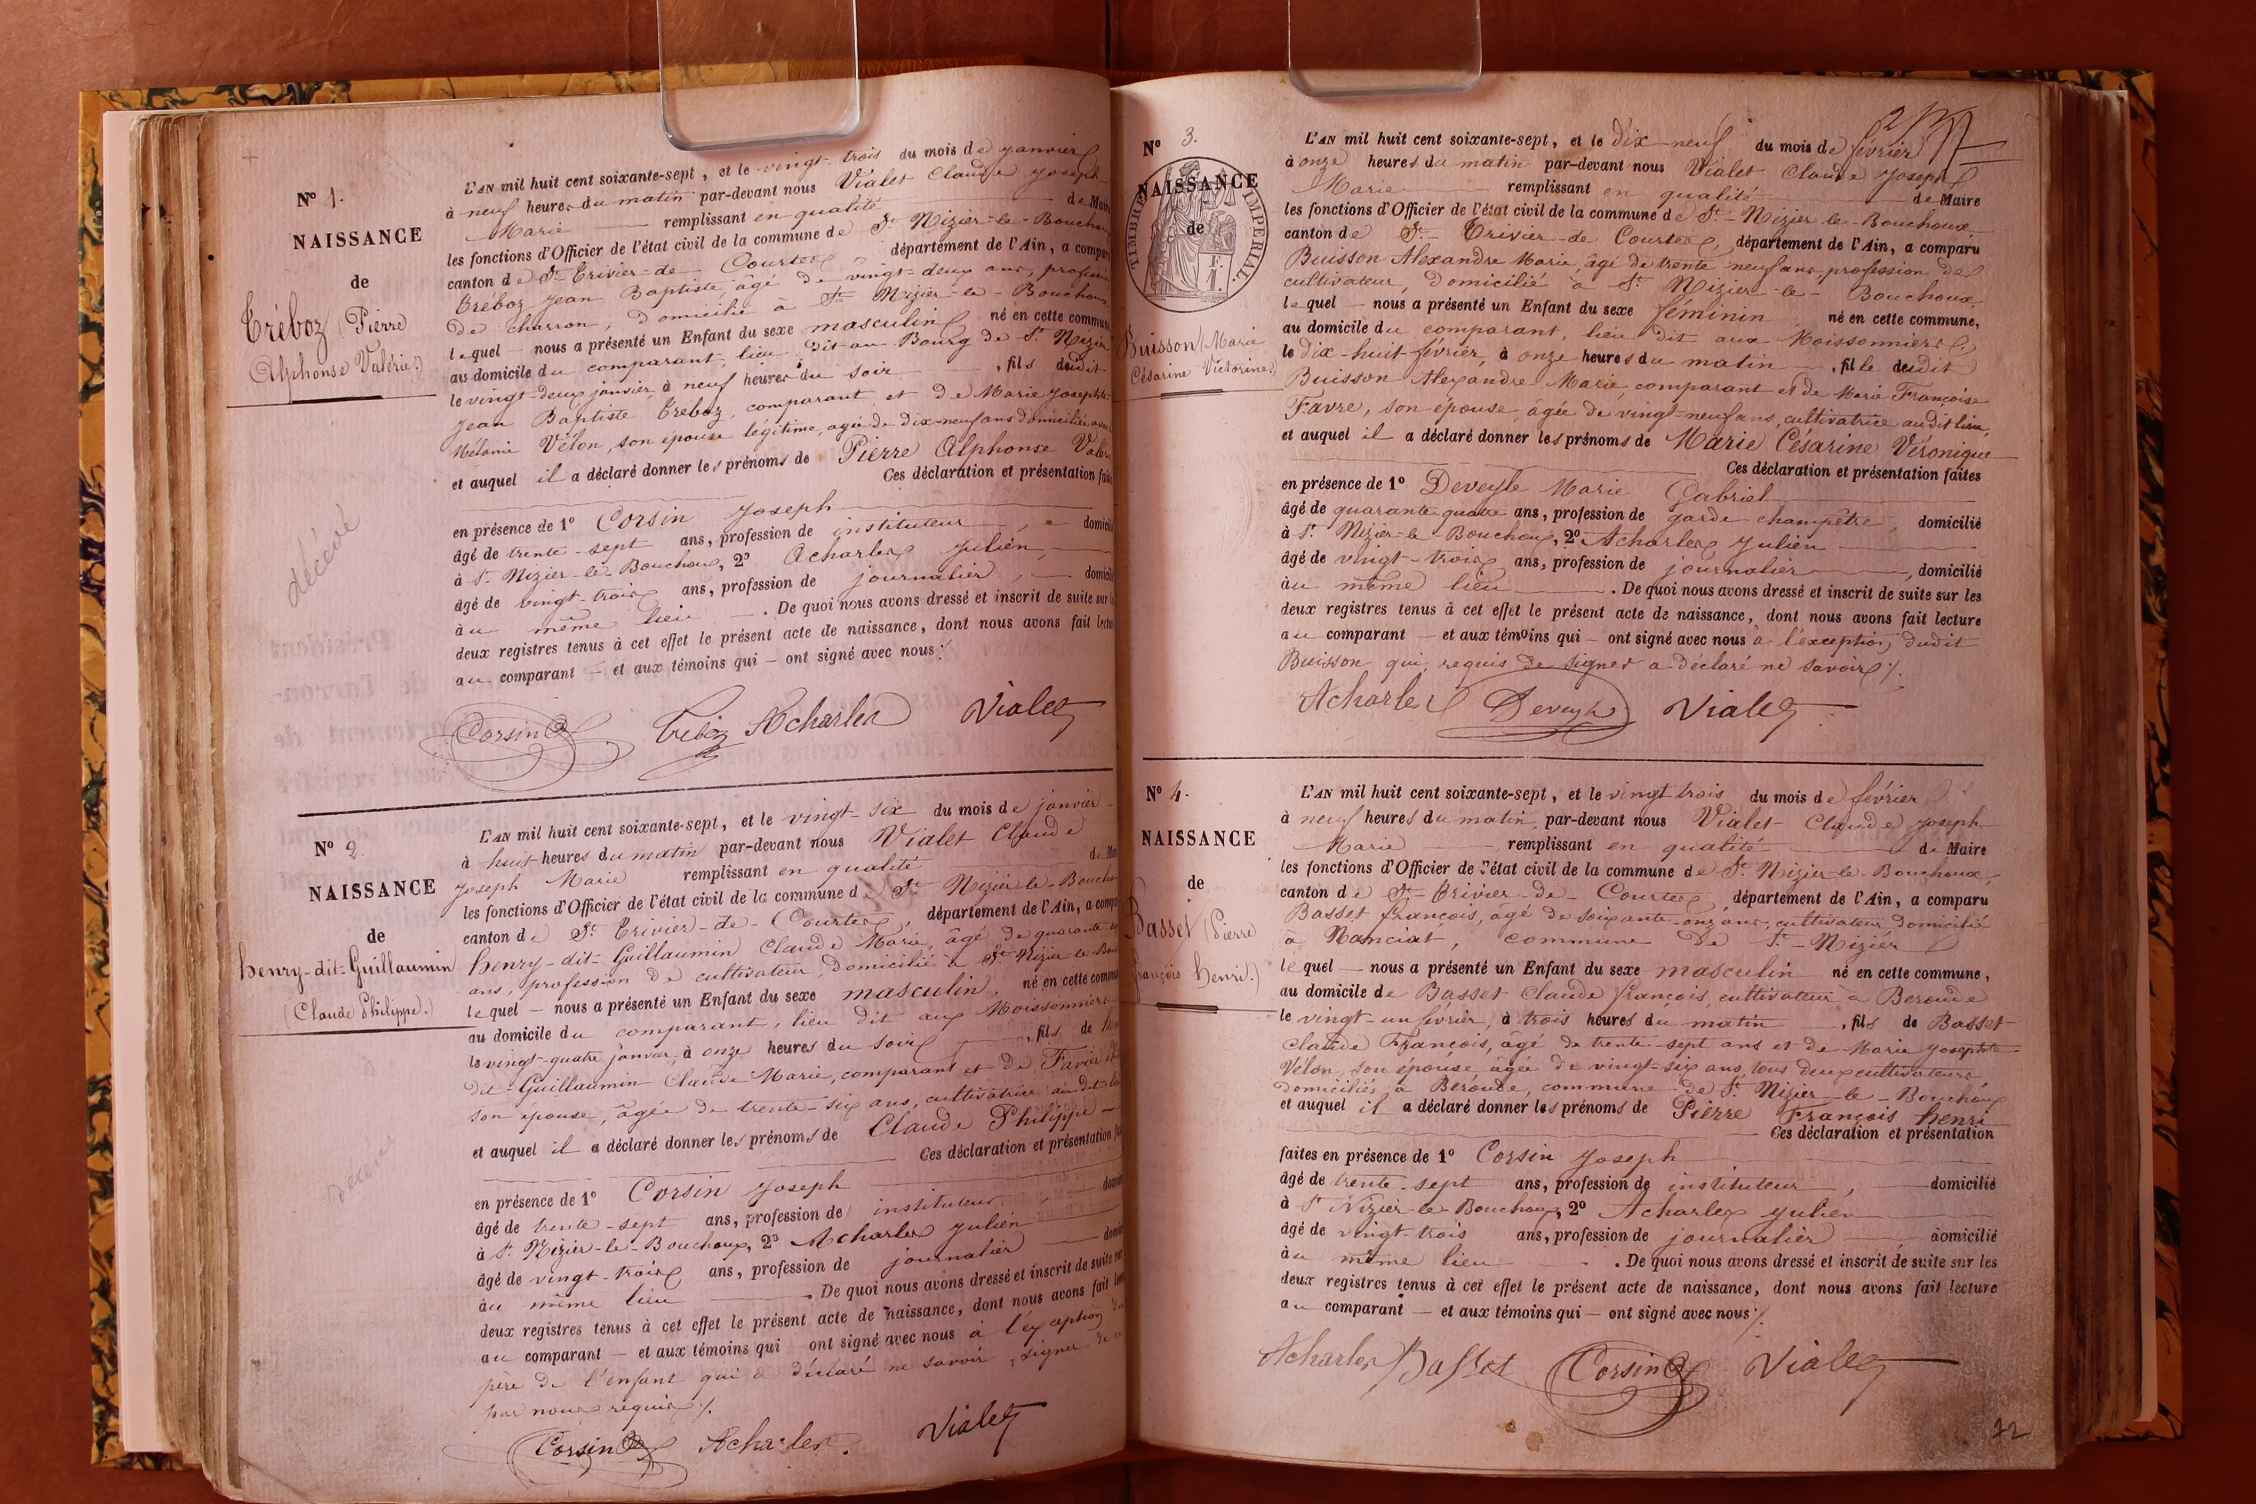 N° 1.
NAISSANCE
de
Tréboz (Pierre
Alphonse Valérie.)
décédé
L'AN mil huit cent soixante-sept, et le vingt-trois du mois de janvier
à neuf heures du matin par-devant nous Vialet Claude Joseph
Marie remplissant en qualité de Maire
les fonctions d'Officier de l'état civil de la commune de St Nizier-le-Bouchoux
canton de St Trivier-de-Courtes, département de l'Ain, a comparu
Tréboz Jean Baptiste âgé de vingt-deux ans, profession
de charron, domicilié à St Nizier-le-Bouchoux
lequel nous a présenté un Enfant du sexe masculin né en cette commune
au domicile du comparant, lieu dit au Bourg de St Nizier
le vingt-deux janvier, à neuf heures du soir, fils dudit
Jean Baptiste Tréboz, comparant et de Marie Josephte
Mélanie Vélon, son épouse légitime, agée de dix-neuf ans domiciliée
et auquel il a déclaré donner les prénoms de Pierre Alphonse
Ces déclaration et présentation faites
en présence de 1° Corsin Joseph
âgé de trente-sept ans, profession de instituteur, domicilié
à St Nizier-le-Bouchoux, 2° Acharles Julien,
âgé de vingt-trois ans, profession de journalier, domicilié
au même lieu. De quoi nous avons dressé et inscrit de suite sur les
deux registres tenus à cet effet le présent acte de naissance, dont nous avons fait lecture
au comparant et aux témoins qui ont signé avec nous
Corsin Tréboz Acharles Vialet
N° 2.
NAISSANCE
de
henry-dit-Guillaumin
(Claude Philippe.)
décédé
L'AN mil huit cent soixante-sept, et le vingt-six du mois de janvier
à huit heures du matin par-devant nous Vialet Claude
Joseph Marie remplissant en qualité de Maire
les fonctions d'Officier de l'état civil de la commune de St Nizier-le-Bouchoux
canton de St Trivier-de-Courtes, département de l'Ain, a comparu
henry-dit-Guillaumin Claude Marie, âgé de quarante
ans, profession de cultivateur, domicilié à St Nizier-le-
lequel nous a présenté un Enfant du sexe masculin, né en cette commune
au domicile du comparant, lieu dit aux Moissonniers
le vingt-quatre janvier à onze heures du soir, fils de
dit-Guillaumin Claude Marie, comparant et de
son épouse, âgée de trente-six ans, cultivatrice audit lieu
et auquel il a déclaré donner les prénoms de Claude Philippe
Ces déclaration et présentation
en présence de 1° Corsin Joseph
âgé de trente-sept ans, profession de instituteur, domicilié
à St Nizier-le-Bouchoux, 2° Acharles Julien
âgé de vingt-trois ans, profession de journalier domicilié
au même lieu. De quoi nous avons dressé et inscrit de suite sur
deux registres tenus à cet effet le présent acte de naissance, dont nous avons fait
au comparant et aux témoins qui ont signé avec nous à l'exception du
père de l'enfant qui a déclaré ne savoir signer de ce
par nous requis
Corsin Acharles. Vialet
N° 3.
TIMBRE IMPERIAL
1 F.
NAISSANCE
de
Buisson (Marie
Césarine Victorine.)
L'AN mil huit cent soixante-sept, et le Dix-neuf du mois de février
à onze heures du matin par-devant nous Vialet Claude Joseph
Marie remplissant en qualité de Maire
les fonctions d'Officier de l'état civil de la commune de St-Nizier-le-Bouchoux,
canton de St-Trivier-de-Courtes, département de l'Ain, a comparu
Buisson Alexandre Marie, âgé de trente neuf ans, profession de
cultivateur, domicilié à St Nizier-le-Bouchoux,
lequel nous a présenté un Enfant du sexe féminin né en cette commune,
au domicile du comparant, lieu dit aux Moissonniers,
le dix-huit février, à onze heures du matin, fille dudit
Buisson Alexandre Marie, comparant et de Marie Françoise
Favre, son épouse, âgée de vingt-neuf ans, cultivatrice audit lieu,
et auquel il a déclaré donner les prénoms de Marie Césarine Véronique
Ces déclaration et présentation faites
en présence de 1° Deveyle Marie Gabriel
âgé de quarante quatre ans, profession de garde champêtre, domicilié
à St Nizier-le-Bouchoux, 2° Acharles Julien
âgé de vingt-trois ans, profession de journalier, domicilié
au même lieu. De quoi nous avons dressé et inscrit de suite sur les
deux registres tenus à cet effet le présent acte de naissance, dont nous avons fait lecture
au comparant et aux témoins qui ont signé avec nous à l'exception dudit
Buisson qui, requis de signer a déclaré ne savoir
Acharles Deveyle Vialet
N° 4.
NAISSANCE
de
Basset (Pierre
François henri.)
L'AN mil huit cent soixante-sept, et le vingt trois du mois de février
à neuf heures du matin, par-devant nous Vialet Claude Joseph
Marie remplissant en qualité de Maire
les fonctions d'Officier de l'état civil de la commune de St-Nizier-le-Bouchoux,
canton de St-Trivier-de-Courtes, département de l'Ain, a comparu
Basset françois, âgé de soixante-onze ans, cultivateur, domicilié
à Nanciat, commune de St-Nizier
lequel nous a présenté un Enfant du sexe masculin né en cette commune,
au domicile de Basset Claude françois, cultivateur à Beroude
le vingt-un février, à trois heures du matin, fils de Basset
Claude François, âgé de trente-sept ans et de Marie Josephte
Vélon, son épouse âgée de vingt-six ans, tous deux cultivateurs
domiciliés à Béroude, commune de St Nizier-le-Bouchoux
et auquel il a déclaré donner les prénoms de Pierre François henri
Ces déclaration et présentation
faites en présence de 1° Corsin Joseph
âgé de trente-sept ans, profession de instituteur, domicilié
à St Nizier-le-Bouchoux, 2° Acharles Julien
âgé de vingt-trois ans, profession de journalier domicilié
au même lieu. De quoi nous avons dressé et inscrit de suite sur les
deux registres tenus à cet effet le présent acte de naissance, dont nous avons fait lecture
au comparant et aux témoins qui ont signé avec nous
Acharles Basset Corsin Vialet
72